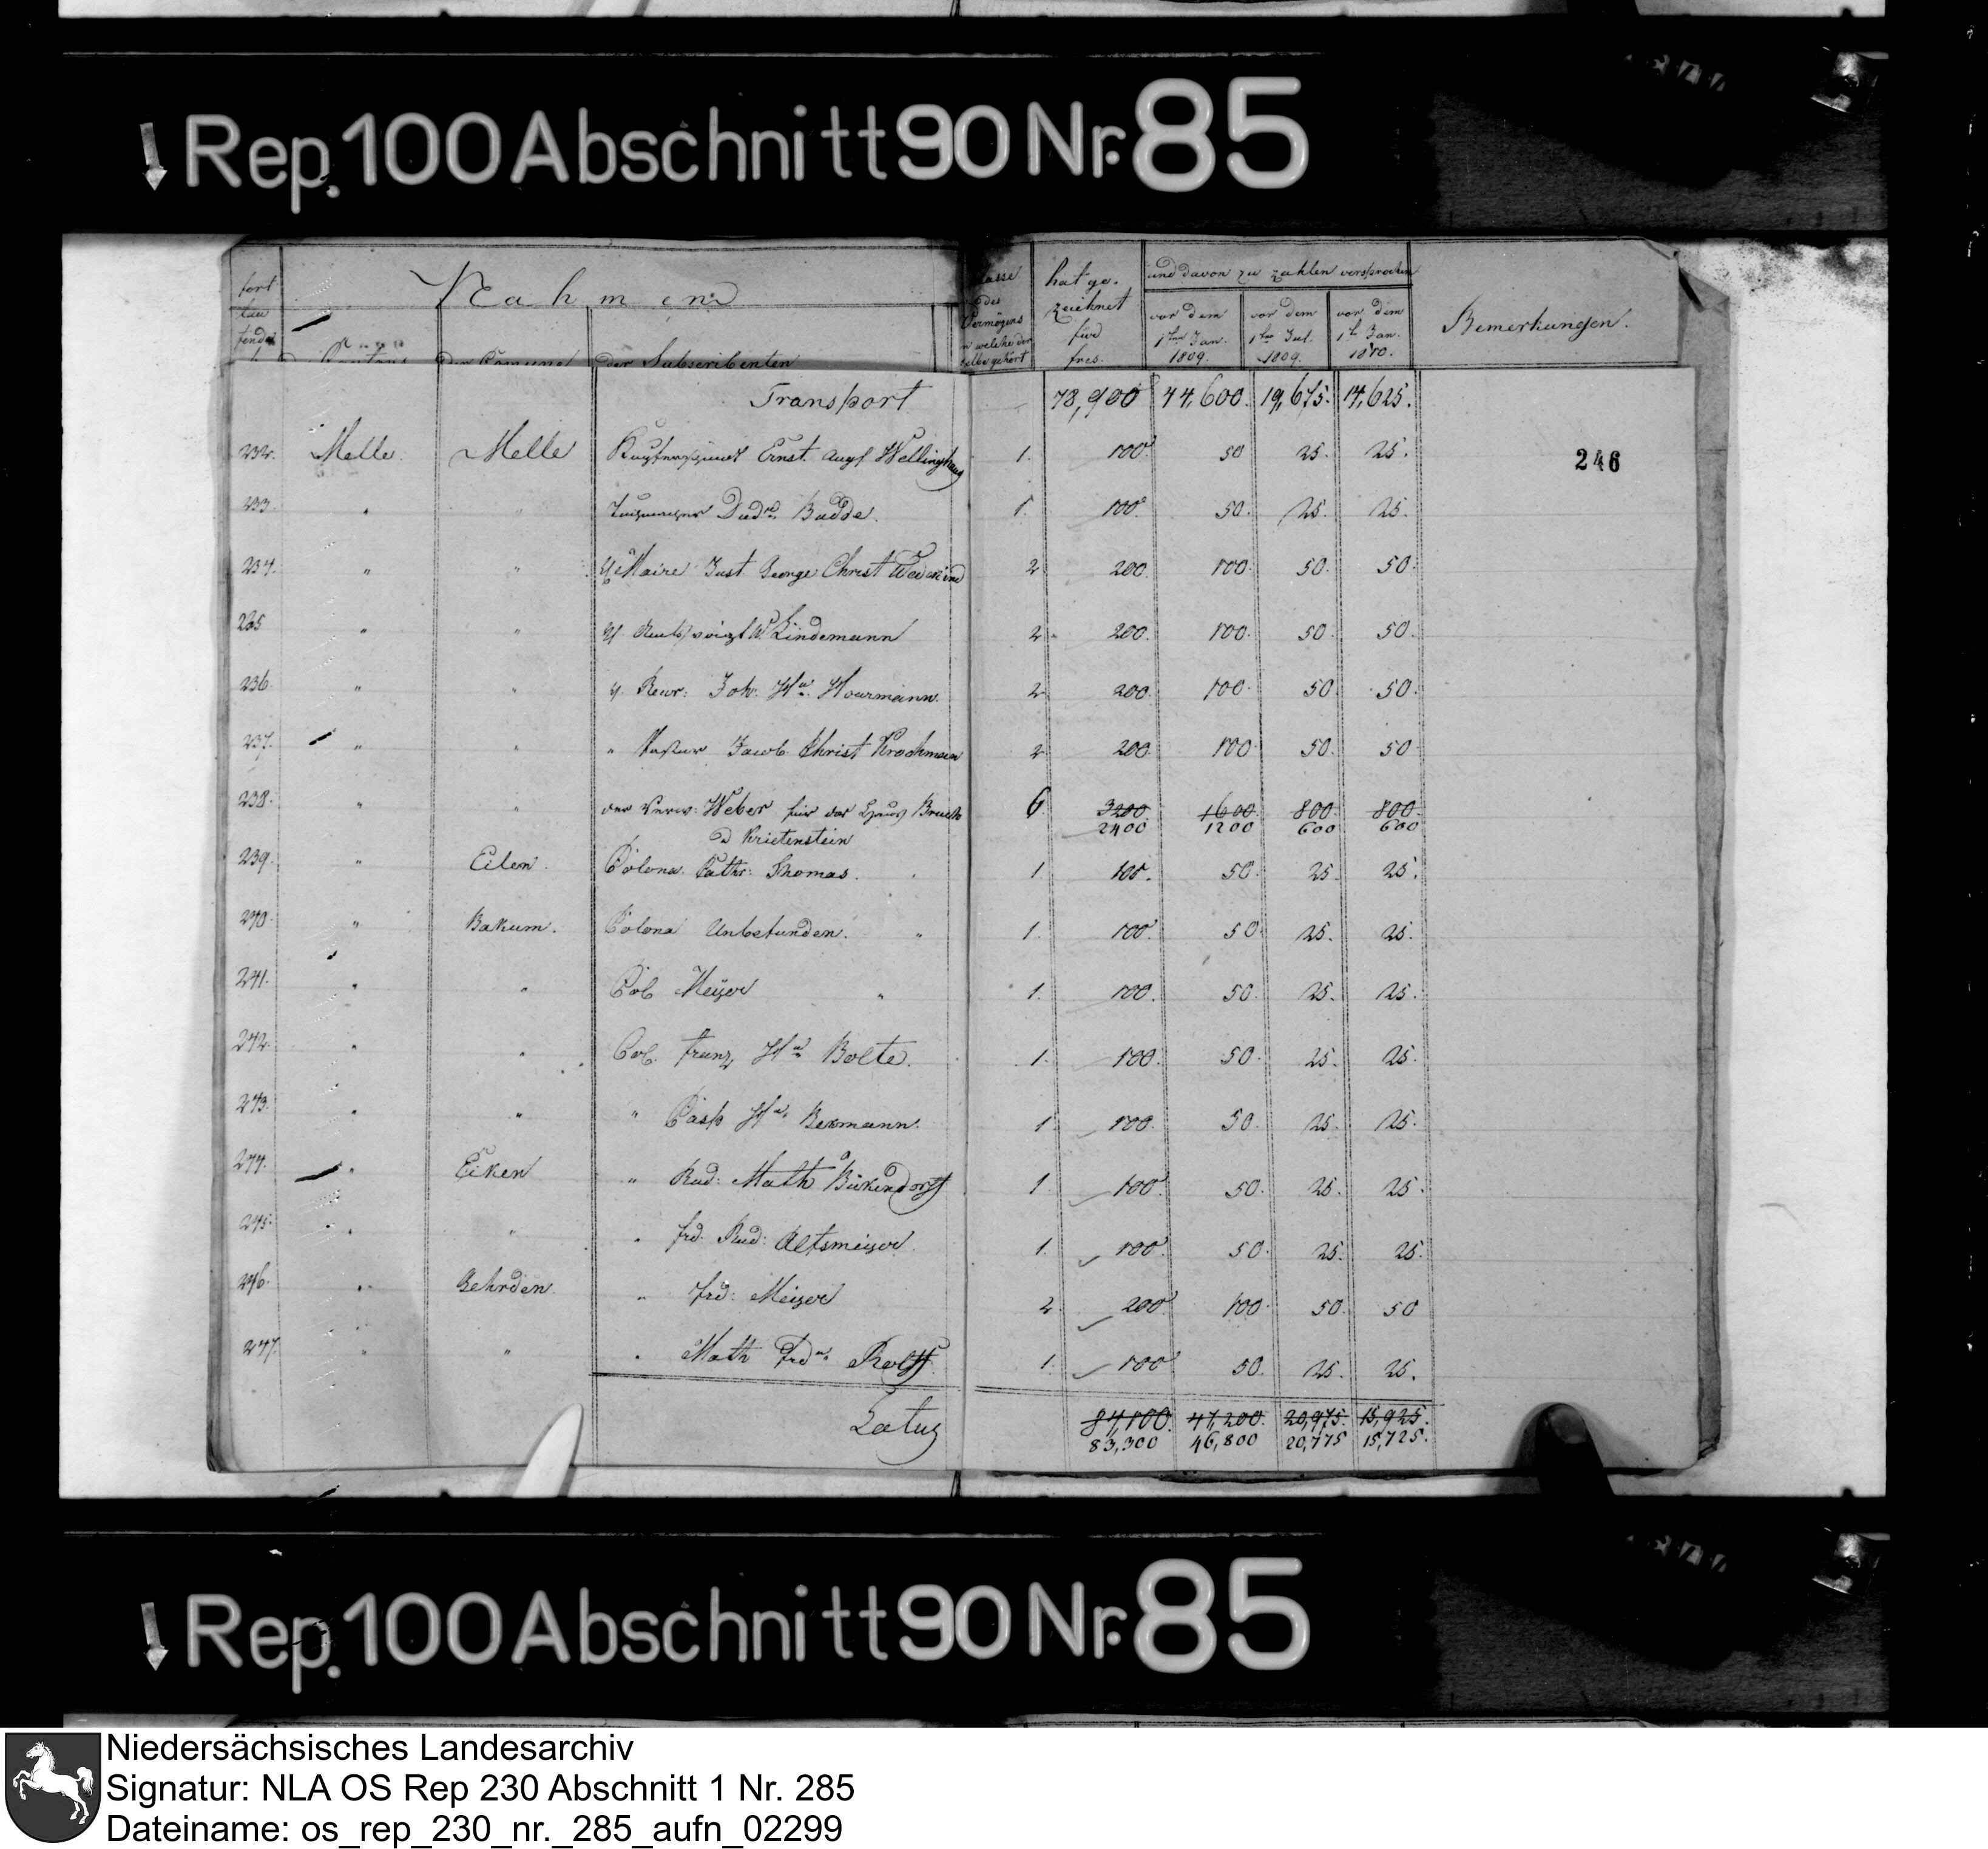 Rep. 100 Abschnitt 90 Nr. 85
fort
lau
fende
Nahmen
der Comune
der Subscribenten
Classe
des
Vermögens
in welche der
selbe gehört
hat ge-
zeichnet
für
frcs.
und davon zu zahlen versprochen
vor dem
1ten Jan.
1809.
vor dem
1ten Jul.
1809.
vor dem
1ten Jan.
1810.
Bemerkungen.
Transport 78,900 44,600. 19,675. 14,625.
246
232. Melle Melle Kupferschmied Ernst Aug Wellinghaus 1. 100. 50 25. 25.
233. " " Budde. 1. 100. 50. 25. 25.
234. " " Maire Just George Christ Wedekind 2 200. 100. 50. 50.
235 " " Lindemann 2. 200. 100. 50. 50.
236. " " Joh. Hr. 2 200. 100. 50. 50.
237. " " " Pastor Jacob Christ Krochmann 2 200. 100. 50. 50
238. " " Weber für das Haus Bruche 6 3200. 1600. 800. 800.
& Kristenstein 2400 1200 600 600
239. " Eilen. Colona Cathr. Thomas. 1. 100. 50. 25. 25.
240. " Bakum. Colona Unbefunden. " 1. 100. 50. 25. 25.
241. " " Col Meÿer " 1. 100. 50. 25. 25.
242. " " Col. Franz Hr. Bolte. 1. 100. 50. 25. 25.
243. " " " Casp Hr. Bermann. 1 100. 50. 25. 25.
244. " Eiken " Rud: Math Bükendorff 1 100. 50. 25. 25.
245. " " " Frd. Rud: Altsmeiger. 1. 100. 50. 25. 25.
246. " Gehrden. " Frd: Meiger 2 200. 100. 50. 50
247. " " " Math Frdr. Rolff 1. 100 50. 25. 25.
Latus 84,100. 47,200. 20,975. 15,925.
83,300 46,800 20,775 15,725.
Rep. 100 Abschnitt 90 Nr. 85
Niedersächsisches Landesarchiv
Signatur: NLA OS Rep 230 Abschnitt 1 Nr. 285
Dateiname: os_rep_230_nr._285_aufn_02299